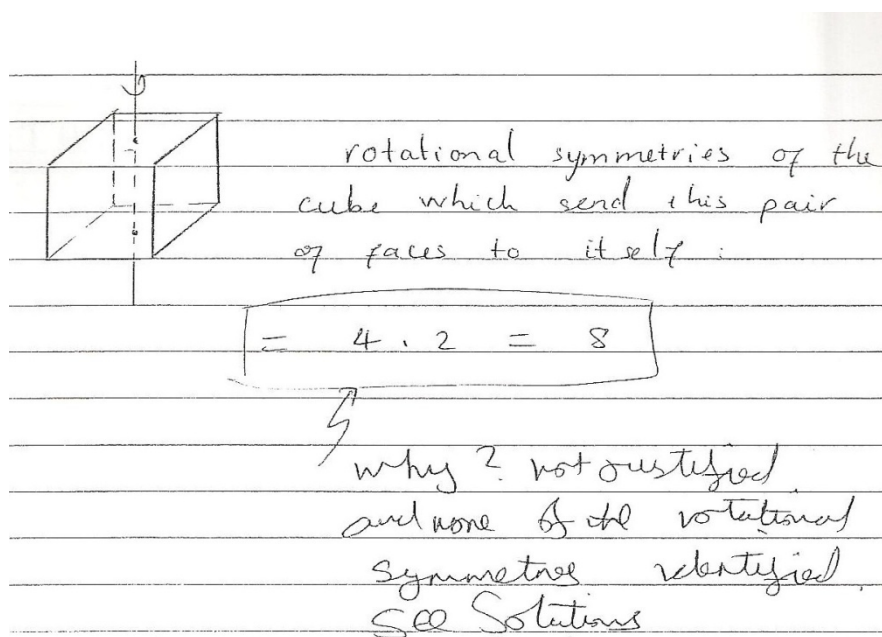 rotational symmetries of the
cube which send this pair
of faces to itself :
= 4 . 2 = 8
why? not justified
and none of the rotational
symmetries identified.
See Solutions